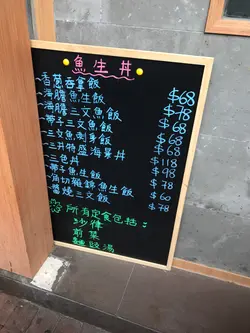 魚生丼
香蔥吞拿飯 $68
海膽魚生飯 $78
海膽三文魚飯 $68
帶子三文魚飯 $68
三文魚刺身飯 $68
三井特盛海景丼 $118
三色丼 $98
帶子魚生飯 $78
角切雜錦魚生飯 $60
醬燒三文飯 $78
所有定食包括：
沙律
前菜
麵豉湯